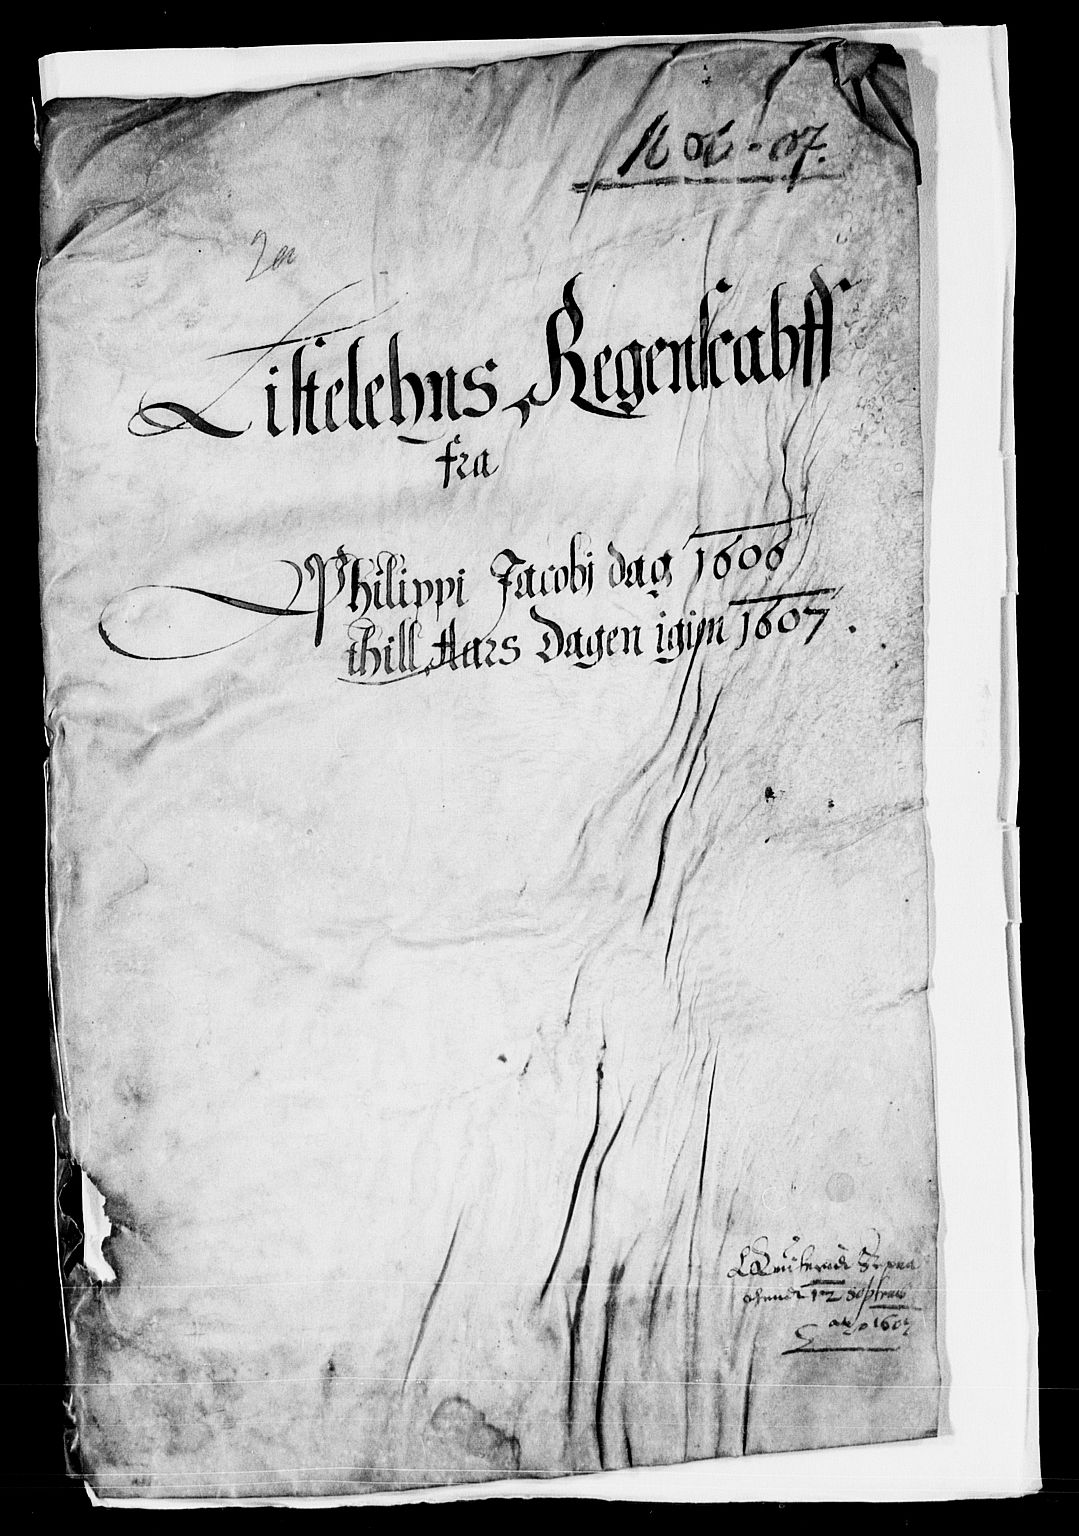 1606-07.
Listelehns Regenscabff
fra
Philippi Jacobi dag 1606
thill Aars Dagen igien 1607.
12 Septemb
anno 1607